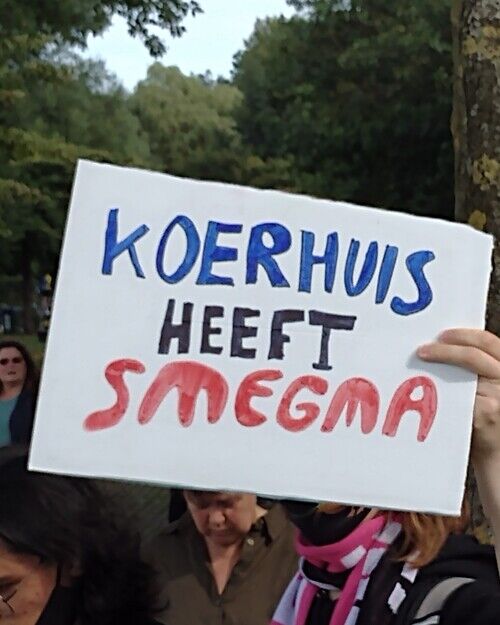 KOERHUIS
HEEFT
SMEGMA